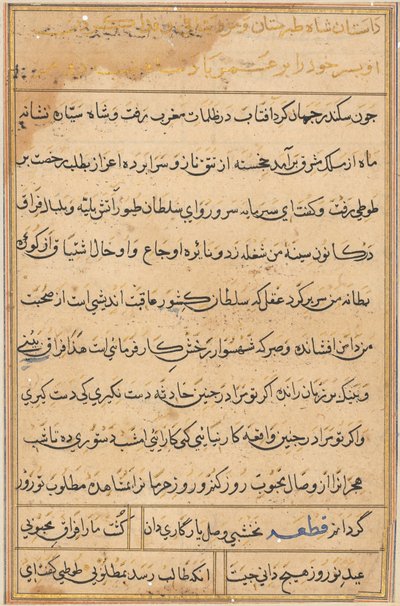 داستان شاه طبرستان و
او پسر خود را بر
چون سکندر جهان کرد افتاب در ظلمات مغرب رفت و شاه سیاره نشانی
ماه از ملک شرق برآمد خجسته از تتق ناز و سرا پرده اعزاز بطلب رخصت بر
طوطی رفت و کفت ای سیرمایه سرور وای سلطان طیور اتش بلیه و بلبال فراق
در کانون سینه من شعله زد و نائره اوجاع و اوحال اشتیاق از کوره
بطانه من سر بر کرد عقل که سلطان کشور عاقبت اندیشی است از صحبت
من دامن افشانده و صبر که شهسوار رخش کار فرمائی است هذا فراق بینی
و بینک بر زبان رانده اکر تو مرا در جنین حادثه دست نکیری کی دست کیری
و اکر تو مرا در جنین واقعه کار نیائی کی کار ائی امشب دستوری ده تا شب
هجرانرا از وصال محبوب روز کنم و روز حرمانرا از مشاهده مطلوب نوروز
گردانم قطعه نخشبی وصل یار کاری دان کفت ما را فراق محبوبی
عید نوروز هیچ دانی جیست انکه طالب رسد بمطلوبی طوطی کفت ای